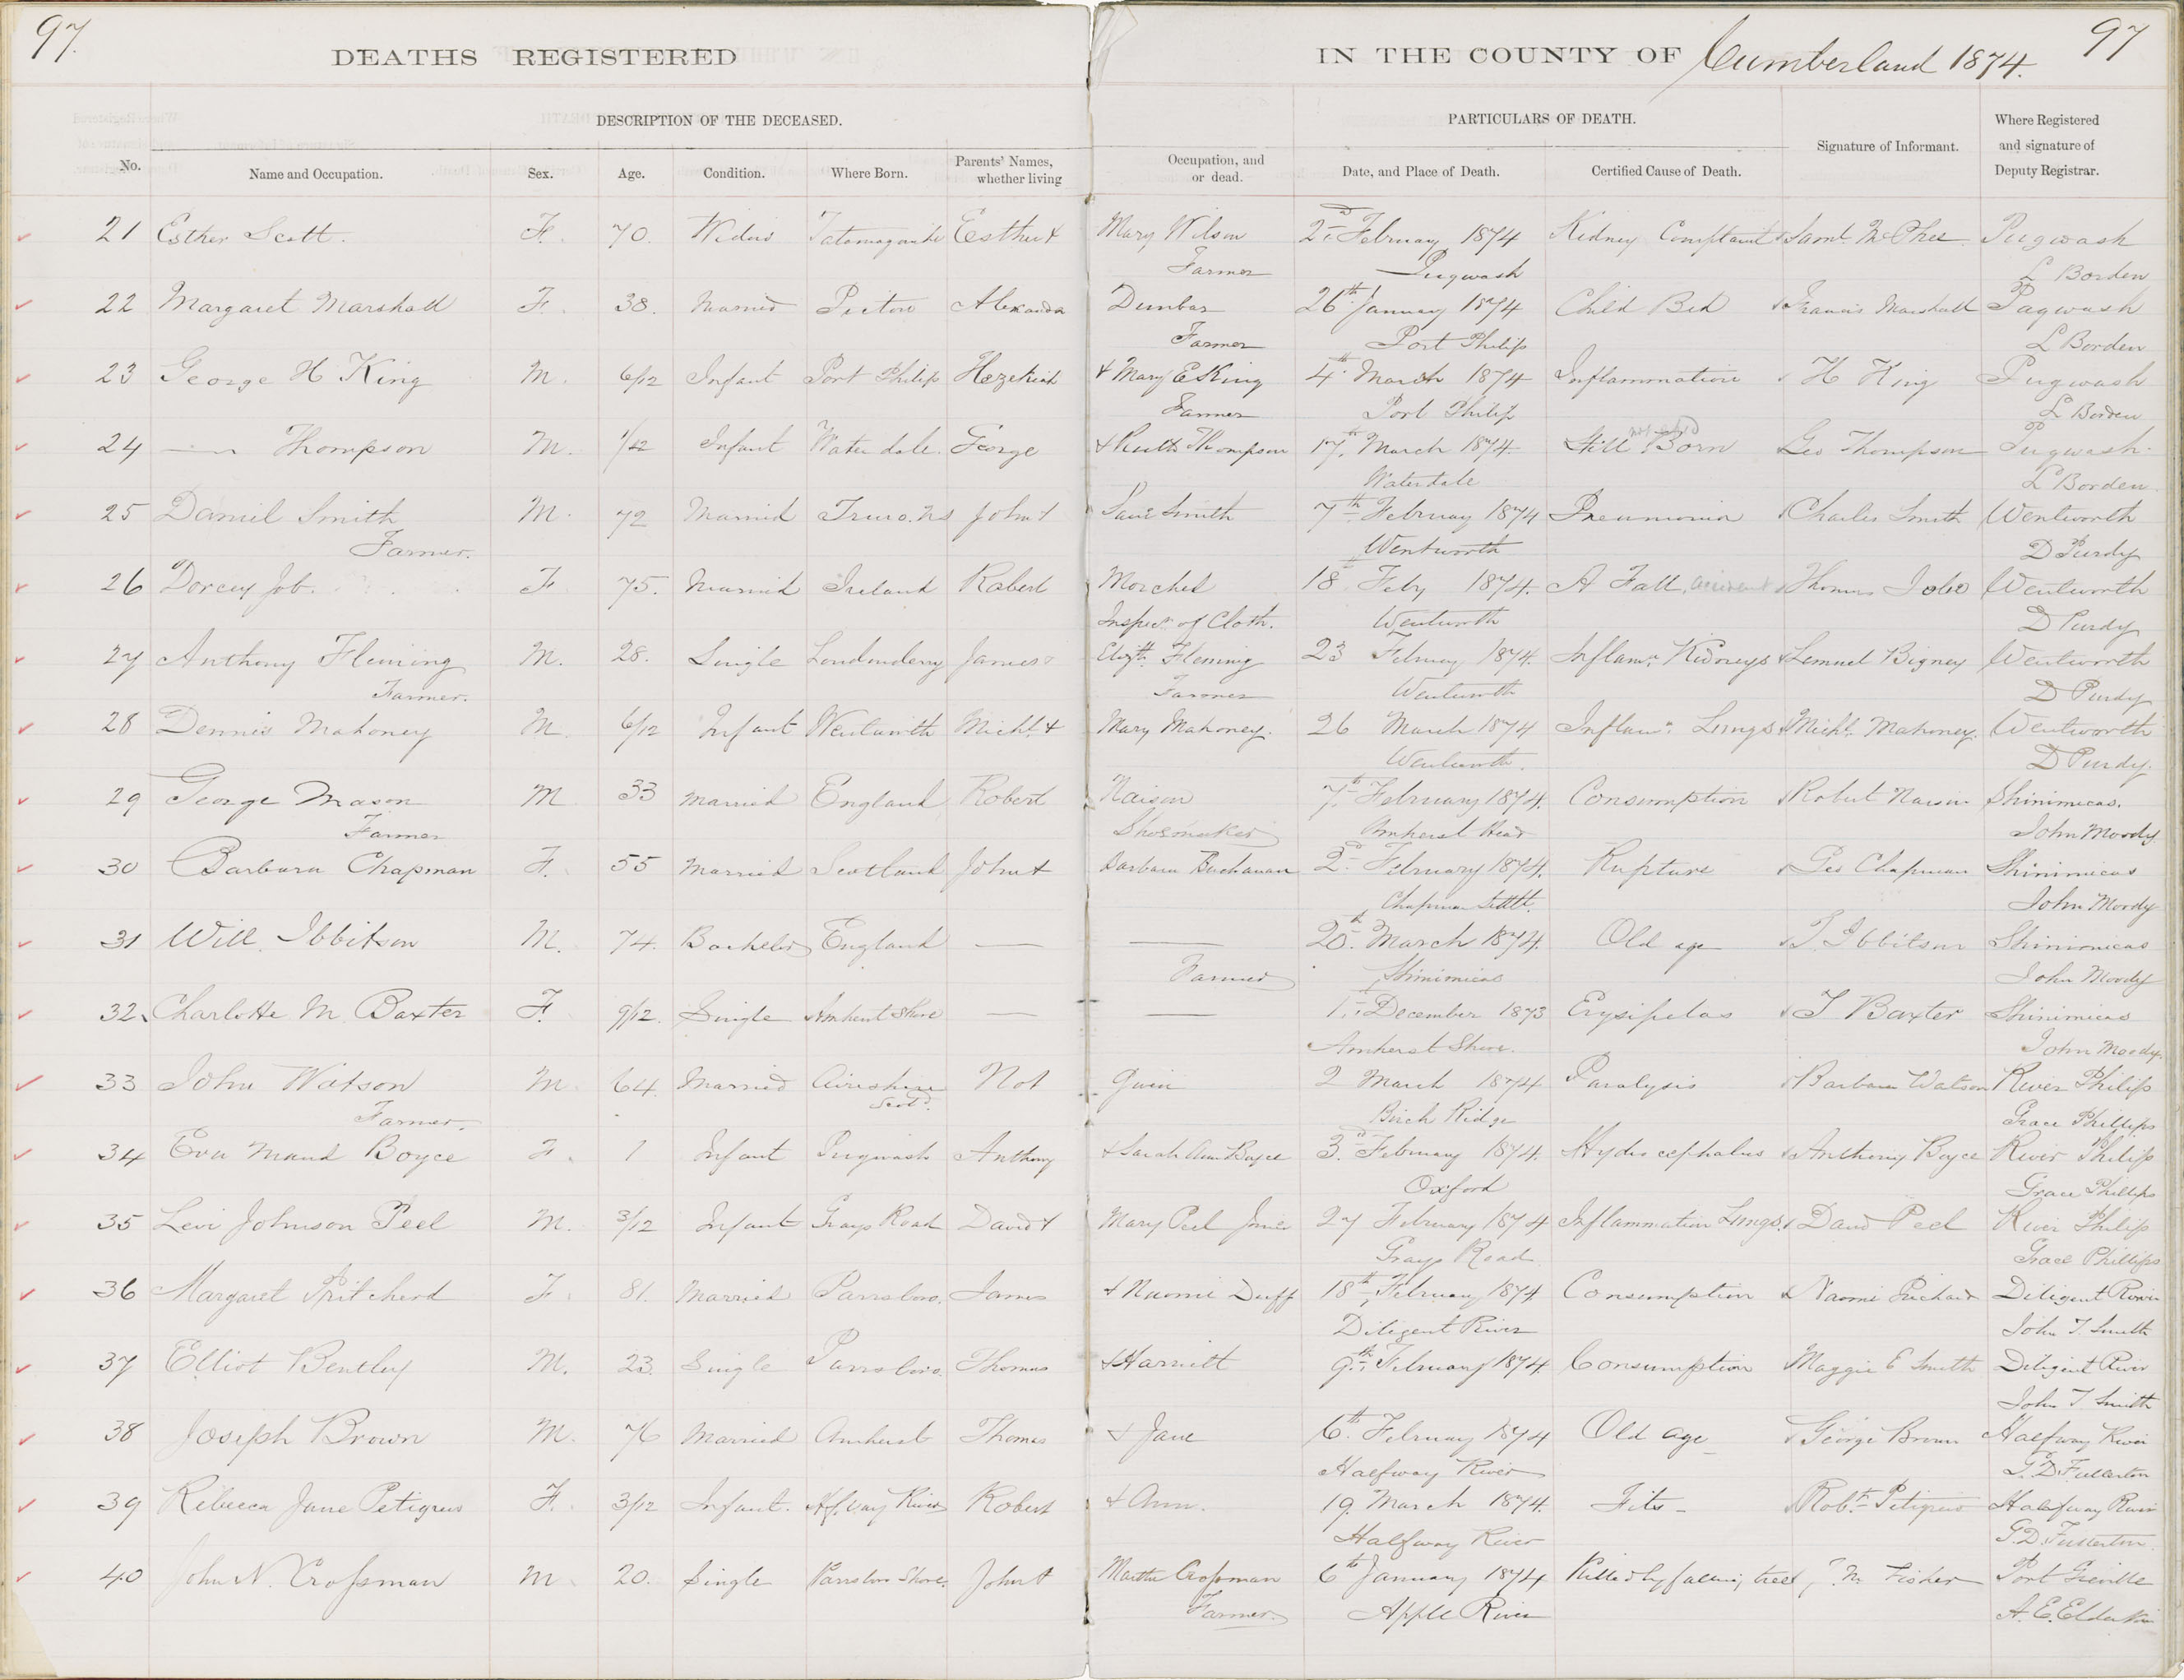 97. 97
DEATHS REGISTERED IN THE COUNTY OF Cumberland 1874.
DESCRIPTION OF THE DECEASED. PARTICULARS OF DEATH.
No. Name and Occupation. Sex. Age. Condition. Where Born. Parents' Names, whether living Occupation, and or dead. Date, and Place of Death. Certified Cause of Death. Signature of Informant. Where Registered and signature of Deputy Registrar.
21 Esther Scott. F. 70. Widow Tatamagouche Esther & Mary Wilson 2nd February 1874 Kidney Complaint Saml McPhee Pugwash
Farmer Pugwash L Borden
22 Margaret Marshall F. 38. Married Pictou Alexander Dunbar 26th January 1874 Child Bed Francis Marshall Pugwash
Farmer Port Philip L Borden
23 George H King M. 6/12 Infant Port Philip Hezekiah & Mary E King 4th March 1874 Inflammation H King Pugwash
Farmer Port Philip L Borden
24 — Thompson M. 1/12 Infant Waterdale. George & Ruth Thompson 17th March 1874 Still Born Geo Thompson Pugwash.
Waterdale L Borden
25 Daniel Smith M. 72 Married Truro. NS John & Smith 7th February 1874 Pneumonia Charles Smith Wentworth
Farmer. Wentworth D Purdy
26 Dorcey Job. F 75. Married Ireland Robert 18 Feby 1874. A Fall, accident Thomas Wentworth
Inspectr of Cloth. Wentworth D Purdy
27 Anthony Fleming M. 28. Single Londonderry James & Elizth Fleming 23 February 1874. Inflamn Kidneys Lemuel Bigney Wentworth
Farmer. Farmer Wentworth D Purdy
28 Dennis Mahoney M. 6/12 Infant Wentworth Michl. & Mary Mahoney. 26 March 1874 Inflamn Lungs Michl. Mahoney. Wentworth
Wentworth. D Purdy.
29 George Mason M 33 Married England Robert Naison 7th February 1874. Consumption Robert Naison Shinimicas.
Farmer Shoemaker Amherst Head John Moody
30 Barbara Chapman F. 55 Married Scotland John & Barbara Buchanan 2nd February 1874. Rupture Geo Chapman Shinimicas
Chapman Settlt. John Moody
31 Will. Ibbitson M. 74. Bachelor England — — 20th March 1874. Old age T. Ibbitson Shinimicas
Farmer Shinimicas John Moody
32. Charlotte M. Baxter F. 9/12. Single Amherst Shore — — 1st December 1873 Erysipelas T Baxter Shinimicas
Amherst Shore. John Moody.
33 John Watson M. 64. Married Aireshire Not Givin 2 March 1874 Paralysis Barbara Watson River Philip
Farmer. Scotd. Birch Ridge Grace Phillips
34 Eva Maud Boyce F. 1 Infant Pugwash Anthony & Sarah Ann Boyce 3rd February 1874. Hydrocephalus Anthony Boyce River Philip
Oxford Grace Phillips
35 Levi Johnson Peel M. 3/12 Infant Grays Road David & Mary Peel 27 February 1874 Inflammation Lungs. David Peel River Philip
Grays Road Grace Phillips
36 Margaret Pritcherd F. 81. Married Parrsboro. James & Naomi Duff 18th February 1874 Consumption Naomi Diligent River
Diligent River John T. Smith
37 Elliot Bentley M. 23. Single Parrsboro. Thomas & Harriett 9th February 1874. Consumption Maggie E Smith Diligent River
John T Smith
38 Joseph Brown M. 76 Married Amherst Thomas & Jane 6th February 1874 Old age George Brown Halfway River
Halfway River G. D. Fullerton
39 Rebecca Jane Petigrew F. 3/12 Infant. Hfway River Robert & Ann. 19. March 1874. Fits - Robt. Petigrew Halfway River
Halfway River G. D. Fullerton.
40 John N. Crossman M 20. Single Parrsboro Shore. John & Martha Crossman 6th January 1874 Killed by falling tree N. Fisher Port Greville
Farmer. Apple River A. E. Elderkin